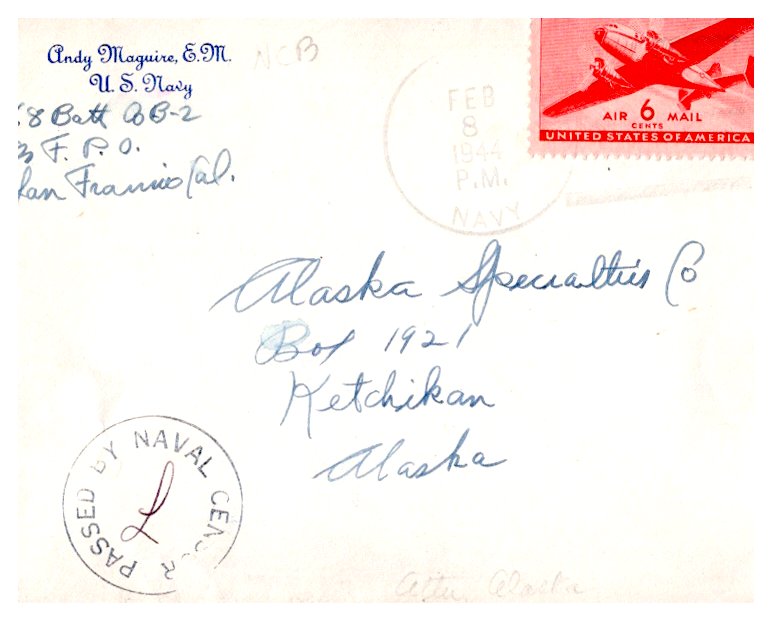 Andy Maguire, E.M.
U. S. Navy
NCB
8 Batt CoB-2
F. P. O.
San Francisco Cal.
FEB
8
1944
P.M.
NAVY
AIR 6 MAIL
CENTS
UNITED STATES OF AMERICA
Alaska Specialties Co
Box 1921
Ketchikan
Alaska
PASSED BY NAVAL CENSOR
L
Attu, Alaska